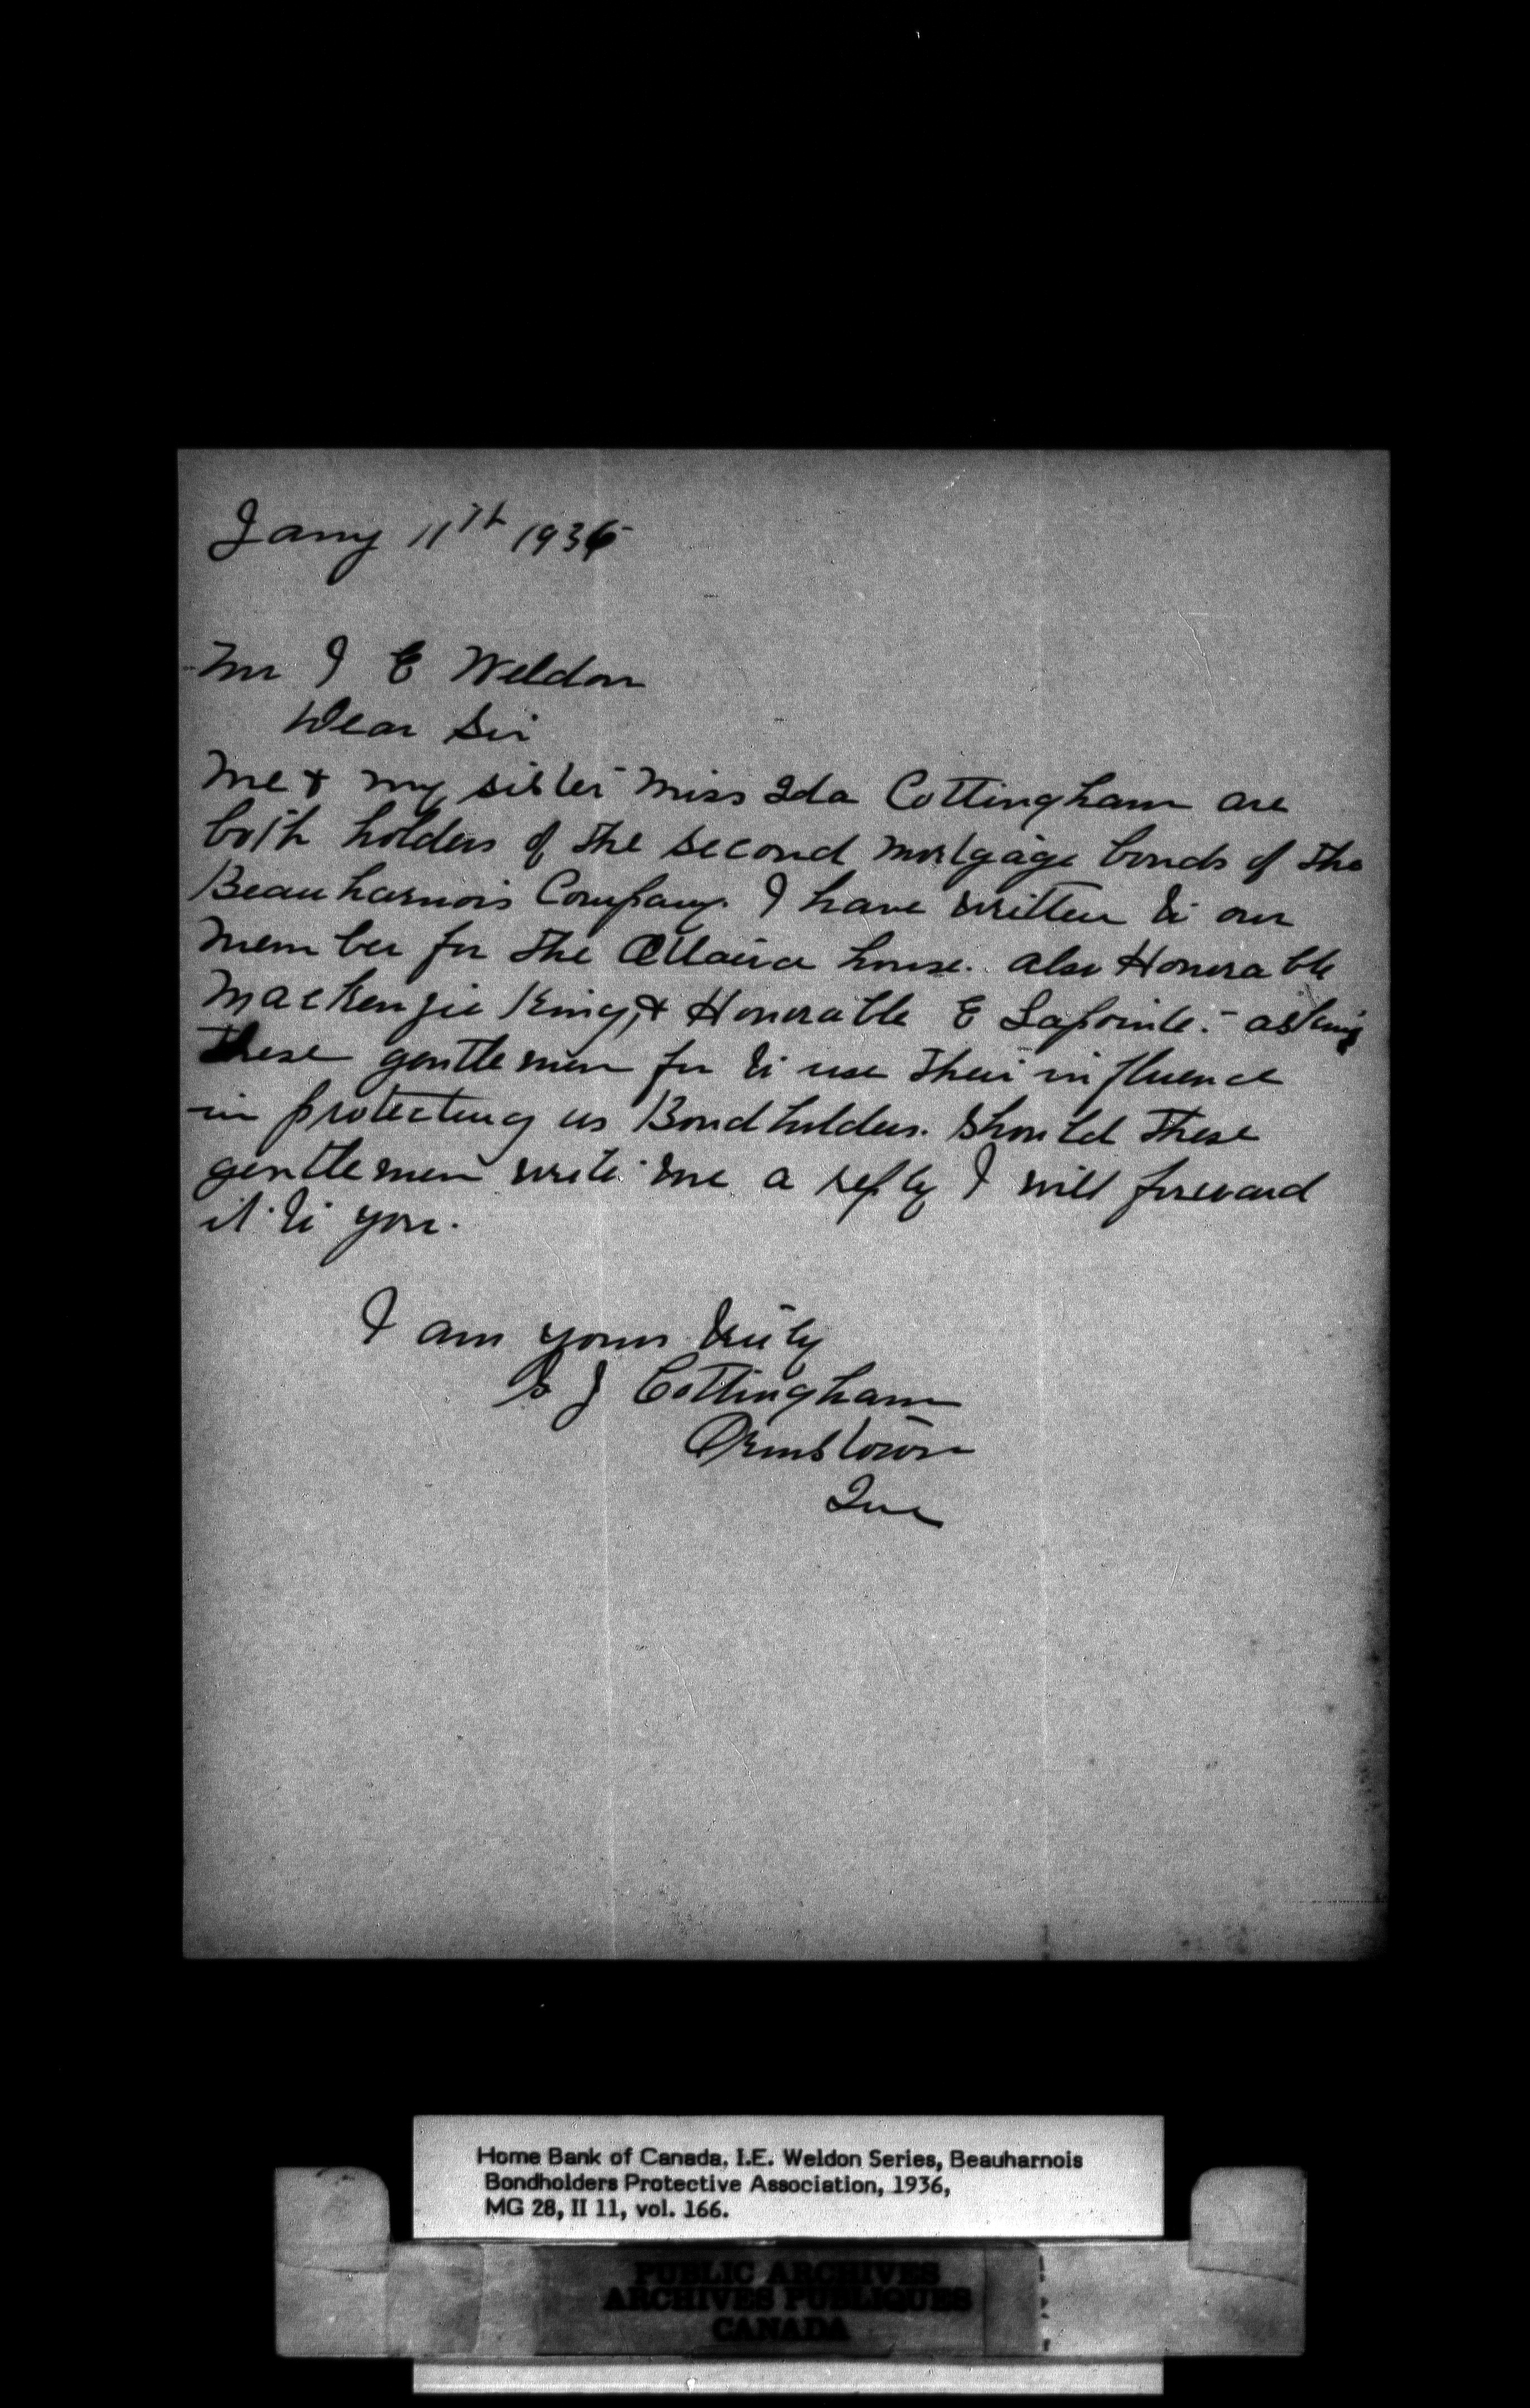 Jany 11th 1936
Mr I E Weldon
Dear Sir
Me & my sister Miss Ida Cottingham are
both holders of the second mortgage bonds of the
Beauharnois Company. I have written to our
member for the Ottawa house. also Honorable
MacKenzie King, & Honorable E Lapointe. - asking
these gentlemen for to use their influence
in protecting us Bondholders. Should these
gentlemen write me a reply I will foreward
it to you.
I am yours truly
S J Cottingham
Ormstown
Que
Home Bank of Canada, I.E. Weldon Series, Beauharnois
Bondholders Protective Association, 1936,
MG 28, II 11, vol. 166.
PUBLIC ARCHIVES
ARCHIVES PUBLIQUES
CANADA